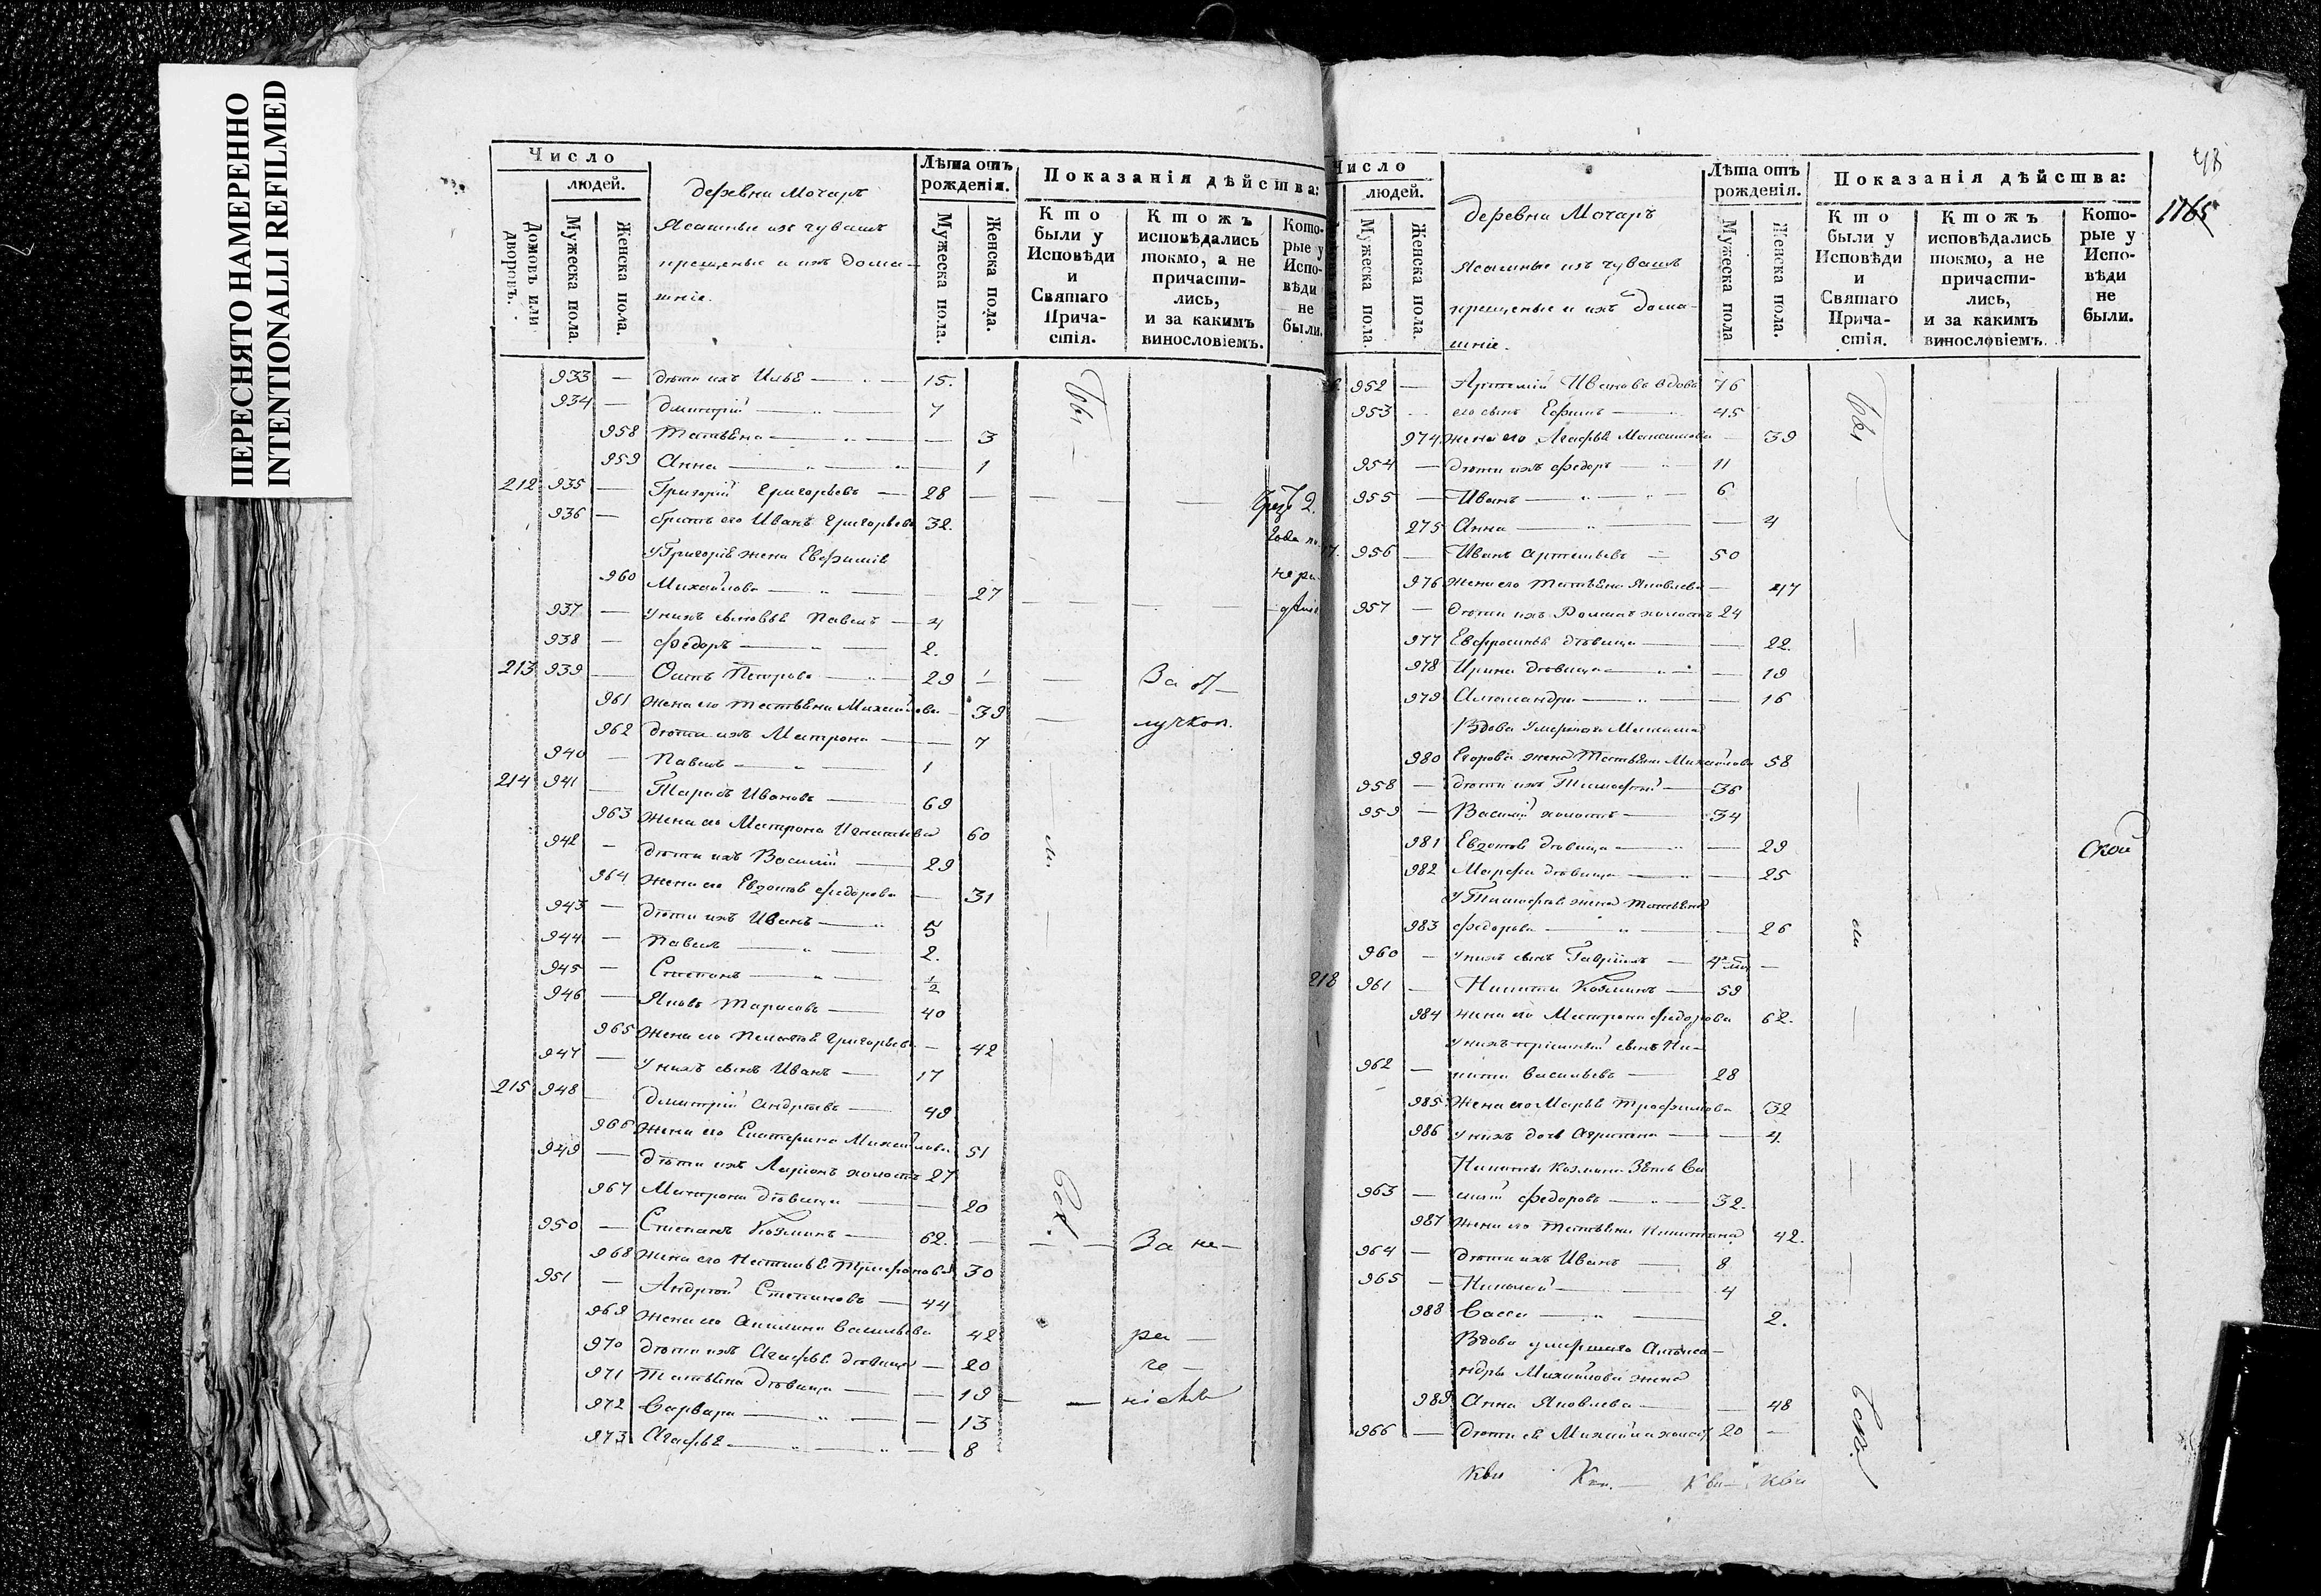 ПЕРЕСНЯТО НАМЕРЕННО
INTENTIONALLI REFILMED
Число
людей.
Домовъ или дворовъ.
Мужеска пола.
Женска пола.
деревни Мочаръ
Ясашные изъ чувашъ
крещеные и ихъ дома-
шніе.
Лѣта отъ рожденія.
Мужеска пола.
Женска пола.
Показанія дѣйства:
Кто были у Исповѣди и Святаго Прича-стія.
Ктожъ исповѣдались токмо, а не причасти-лись, и за какимъ винословіемъ.
Кото-рые у Испо-вѣди не были.
933 — дѣти ихъ Илья — 15.
934 — Дмитрій — 7
958 Татьяна — 3
959 Анна — 1
212 935 — Григорій Григорьевъ — 28
936 — братъ его Иванъ Григорьевъ 32.
У Григорія жена Евфимія
960 Михайлова — 27
937 — У нихъ сыновья Павелъ — 4
938 — Федоръ — 2.
213 939 — Осипъ Петровъ — 29 За от-
961 жена его Татьяна Михайлова 39 лучкой.
962 дѣти ихъ Матрона — 7
940 — Павелъ — 1
214 941 — Тарасъ Ивановъ — 69
963 жена его Матрона Игнатьева 60
942 — дѣти ихъ Василій — 29
964 жена его Евдокія Федорова — 31
943 — дѣти ихъ Иванъ — 5
944 — Павелъ — 2.
945 — Степанъ — ½
946 — Яковъ Тарасовъ — 40
965 жена его Пелагея Григорьева — 42
947 — У нихъ сынъ Иванъ — 17
215 948 — Дмитрій Андреевъ — 49
966 жена его Екатерина Михайлова 51
949 — дѣти ихъ Ларіонъ холостъ 27
967 Матрона дѣвица — 20
950 — Степанъ Козминъ — 62. За не-
968 жена его Настасья Трифонова 30
951 — Андрей Степановъ — 44
969 жена его Акилина Васильева 42 ра-
970 дѣти ихъ Агафья дѣвица — 20 че-
971 Татьяна дѣвица — 19 ніемъ
972 Варвара — 13
973 Агафья — 8
Число
людей.
Мужеска пола.
Женска пола.
деревни Мочаръ
Ясашные изъ чувашъ
крещеные и ихъ дома-
шніе.
Лѣта отъ рожденія.
Мужеска пола
Женска пола.
Показанія дѣйства:
Кто были у Исповѣди и Святаго Прича-стія.
Ктожъ исповѣдались токмо, а не причасти-лись, и за какимъ винословіемъ.
Кото-рые у Испо-вѣди не были.
1765
952 — Артемій Ивановъ вдовъ 76
953 — его сынъ Ефимъ — 45
974 жена его Агафья Максимова — 39
954 — дѣти ихъ Федоръ — 11
955 — Иванъ — 6
275 Анна — 4
956 — Иванъ Артемьевъ — 50
976 жена его Татьяна Яковлева — 47
957 — дѣти ихъ Романъ холостъ 24
977 Евфросинья дѣвица — 22.
978 Ирина дѣвица — 19
979 Александра — 16
Вдова умершаго Максима
980 Егорова жена Татьяна Михайлова 58
958 — дѣти ихъ Тимофей — 36
959 — Василій холостъ — 34
981 Евдокія дѣвица — 29
982 Марфа дѣвица — 25
У Тимофея жена Татьяна
983 Федорова — 26
960 — У нихъ сынъ Гавріилъ —
218 961 — Никита Козминъ — 59
984 жена его Матрона Федорова 62.
У нихъ пріемный сынъ Ни-
962 — кита Васильевъ — 28
985 жена его Марья Трофимова 32
986 У нихъ дочь Агрипина — 4
Никиты Козмина зять Ва
963 — силій Федоровъ — 32.
987 жена его Татьяна Никитина 42.
964 — дѣти ихъ Иванъ — 8
965 — Николай — 4
988 Васса — 2.
Вдова умершаго Алекса-
ндра Михайлова жена
989 Анна Яковлева — 48
966 — дѣти ея Михайла холостъ 20